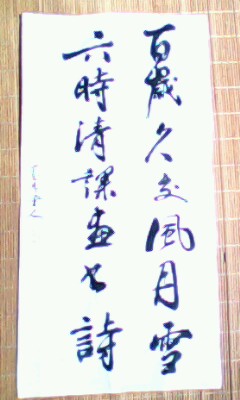 百歲久交風月雪
六時清課畫書詩